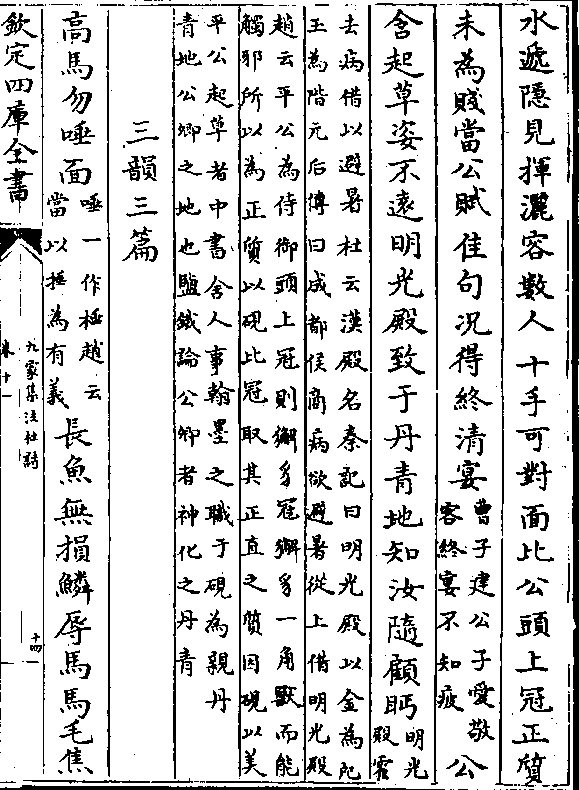 水遞隱見揮灑容數人十手可對面比公頭上冠正質
未為賤當公賦佳句況得終清宴曹子建公子愛敬
客終宴不知疲公
含起草姿不遠明光殿致于丹青地知汝隨顧眄明光
殿霍
去病借以避暑杜云漢殿名秦記曰明光殿以金為戺
玉為階元后傳曰成都侯商病欲避暑從上借明光殿
趙云平公為侍御頭上冠則獬豸冠獬豸一角獸而能
觸邪所以為正質以硯比冠取其正直之質因硯以美
平公起草者中書舍人事翰墨之職于硯為親丹
青地公卿之地也鹽鐵論公卿者神化之丹青
三韻三篇
高馬勿唾面唾一作棰趙云
當以捶為有義長魚無損鱗辱馬馬毛焦
欽定四庫全書
九家集注杜詩
卷十一
十四